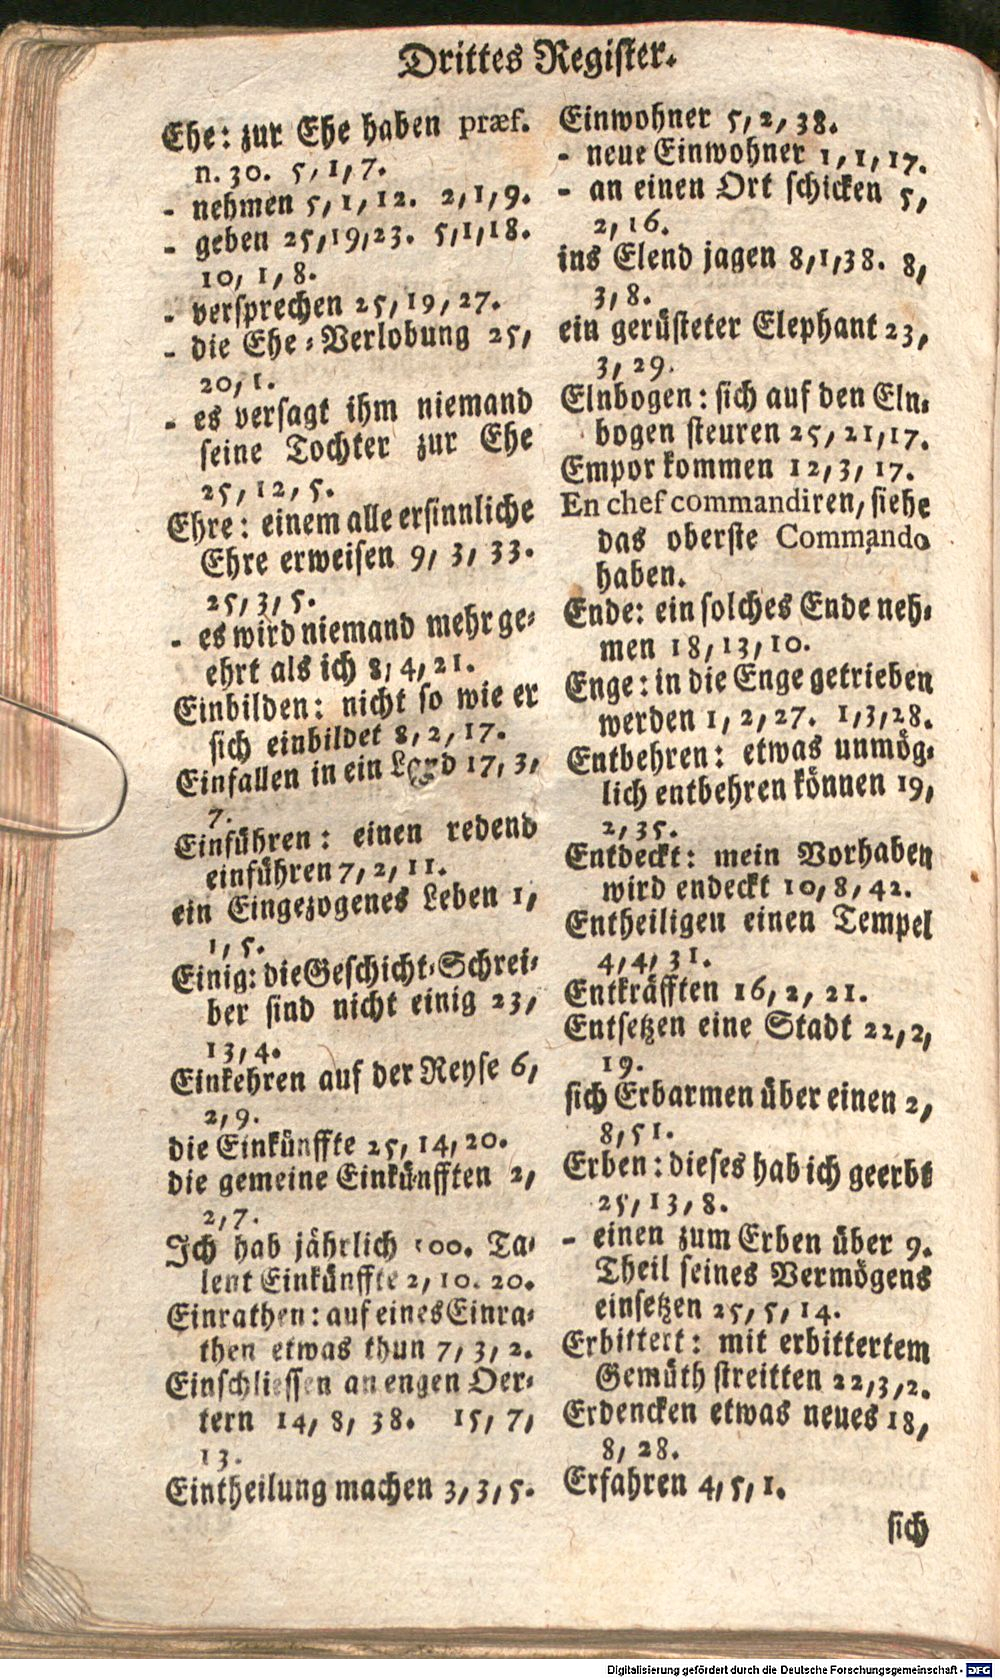 Drittes Register.
Ehe: zur Ehe haben præf.
n. 30. 5, 1, 7.
- nehmen 5, 1, 12. 2, 1, 9.
- geben 25, 19, 23. 5, 1, 18.
10, 1, 8.
- versprechen 25, 19, 27.
- die Ehe-Verlobung 25,
20, 1.
- es versagt ihm niemand
seine Tochter zur Ehe
25, 12, 5.
Ehre: einem alle ersinnliche
Ehre erweisen 9, 3, 33.
25, 3, 5.
- es wird niemand mehr ge-
ehrt als ich 8, 4, 21.
Einbilden: nicht so wie er
sich einbildet 8, 2, 17.
Einfallen in ein Land 17, 3,
7.
Einführen: einen redend
einführen 7, 2, 11.
ein Eingezogenes Leben 1,
1, 5.
Einig: die Geschicht-Schrei-
ber sind nicht einig 23,
13, 4.
Einkehren auf der Reyse 6,
2, 9.
die Einkünffte 25, 14, 20.
die gemeine Einkünfften 2,
2, 7.
Ich hab jährlich 500. Ta-
lent Einkünffte 2, 10. 20.
Einrathen: auf eines Einra-
then etwas thun 7, 3, 2.
Einschliessen an engen Oer-
tern 14, 8, 38. 15, 7,
13.
Eintheilung machen 3, 3, 5.
Einwohner 5, 2, 38.
- neue Einwohner 1, 1, 17.
- an einen Ort schicken 5,
2, 16.
ins Elend jagen 8, 1, 38. 8,
3, 8.
ein gerüsteter Elephant 23,
3, 29.
Elnbogen: sich auf den Eln-
bogen steuren 25, 21, 17.
Empor kommen 12, 3, 17.
En chef commandiren, siehe
das oberste Commando
haben.
Ende: ein solches Ende neh-
men 18, 13, 10.
Enge: in die Enge getrieben
werden 1, 2, 27. 1, 3, 28.
Entbehren: etwas unmög-
lich entbehren können 19,
2, 35.
Entdeckt: mein Vorhaben
wird endeckt 10, 8, 42.
Entheiligen einen Tempel
4, 4, 31.
Entkräfften 16, 2, 21.
Entsetzen eine Stadt 22, 2,
19.
sich Erbarmen über einen 2,
8, 51.
Erben: dieses hab ich geerbt
25, 13, 8.
- einen zum Erben über 9.
Theil seines Vermögens
einsetzen 25, 5, 14.
Erbittert: mit erbittertem
Gemüth streitten 22, 3, 2.
Erdencken etwas neues 18,
8, 28.
Erfahren 4, 5, 1.
sich
Digitalisierung gefördert durch die Deutsche Forschungsgemeinschaft - DFG